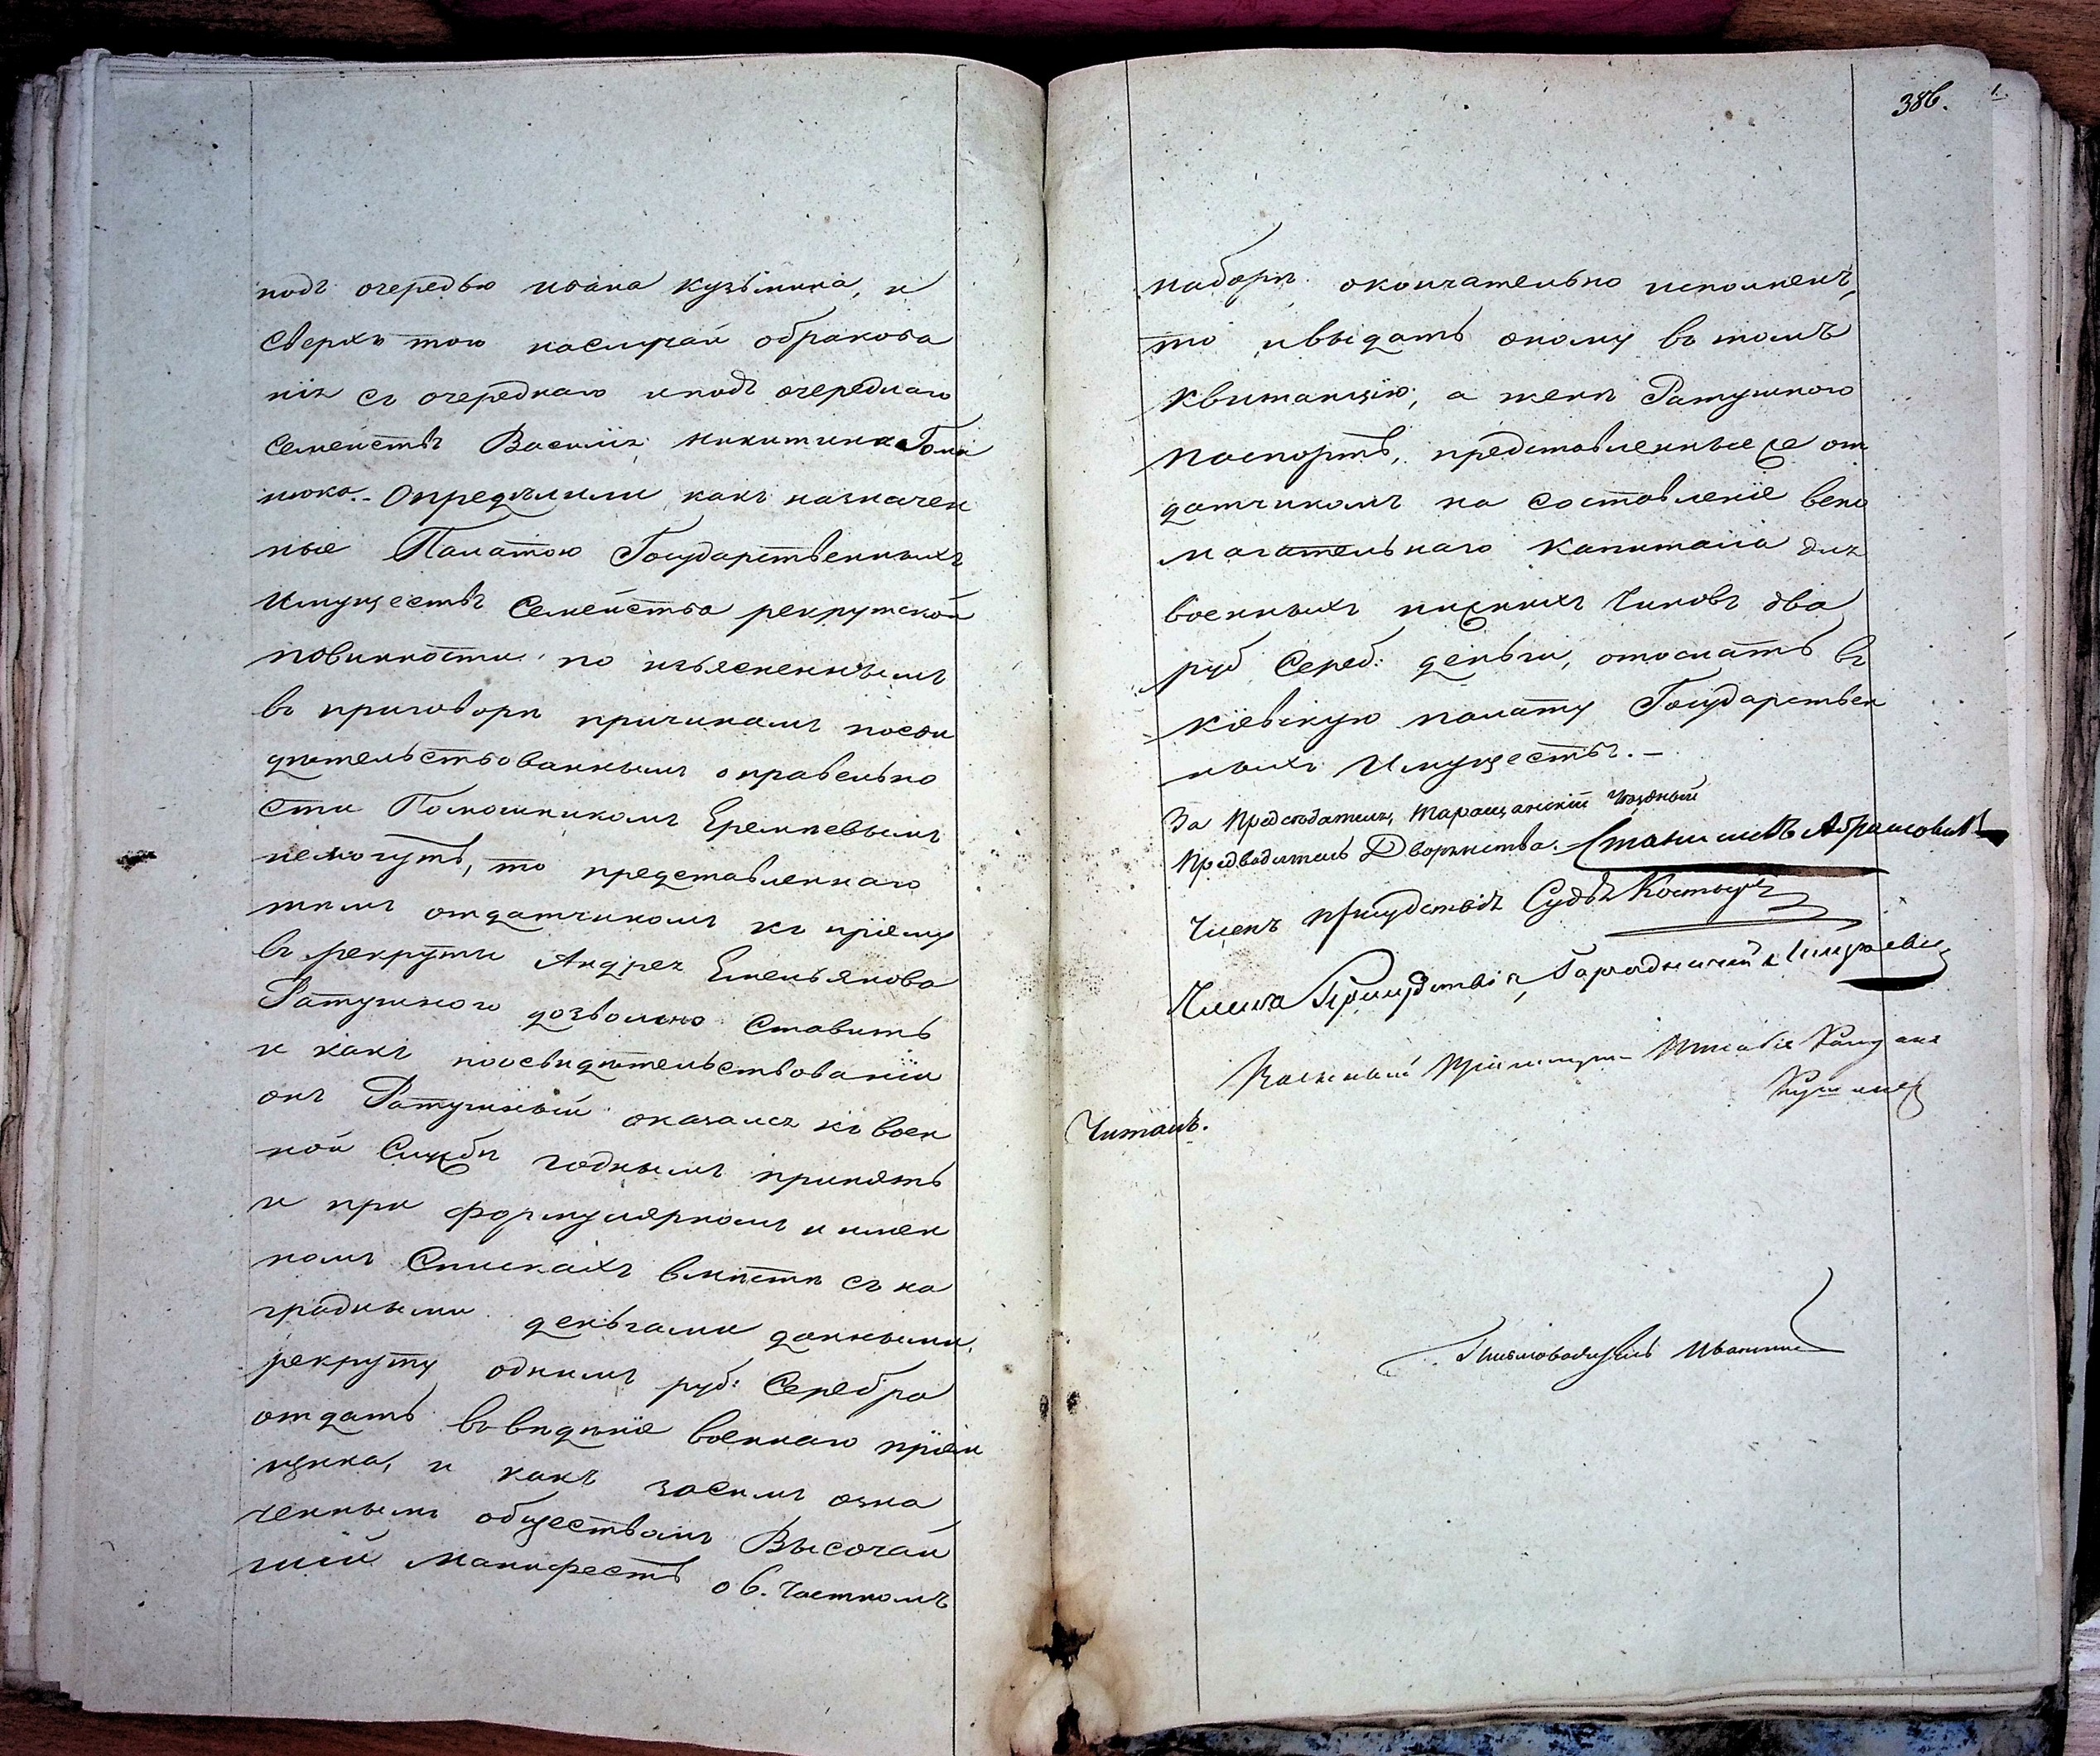 подъ очередью Ивана Кузьмина, и
сверхъ того наслучай обракова
нія съ очереднаго иподъ очереднаго
семействъ Василія Никитина Гома
нюка. - Определили какъ назначен
ные Палатою Государственныхъ
Имуществъ Семейства рекрутской
повинности по изъясненнымъ
въ приговоре причинамъ посви
дѣтельствованнымъ оправельно
сти Помошникомъ Еремѣевымъ
немогутъ, то представленнаго
тѣмъ отдатчикомъ къ пріему
въ рекруты Андрея Емельянова
Ратушного дозволено ставить
и какъ поосвидѣтельствованіи
онъ Ратушный оказался къ воен
ной Службѣ годнымъ принять
и при формулярномъ и имен
номъ Спискахъ вмѣстѣ съ на
градными деньгами данными
рекруту однимъ руб: Серебра
отдать въ видѣніе военнаго пріем
щика, и какъ засимъ озна
ченнымъ обществамъ Высочай
шій Манифестъ о 6. частномъ
386.
наборѣ окончательно исполненъ,
то ивыдать оному въ томъ
квитанцію; а женѣ Ратушного
паспортъ, представленные же от
датчикомъ на составленіе вспо
магательнаго капитала для
военныхъ нижнихъ Чиновъ два
руб Сереб: деньги, отослать въ
Кіевскую палату Государствен
ныхъ Имуществъ. -
За Предсѣдателя, Таращанскій Уѣздный
Предводитель Дворянства. Станиславъ Абрамовичъ
Членъ присудствія Судья
Члена Присудствія, Городничий
Военный Пріемщикъ
Читалъ.
Письмоводитель